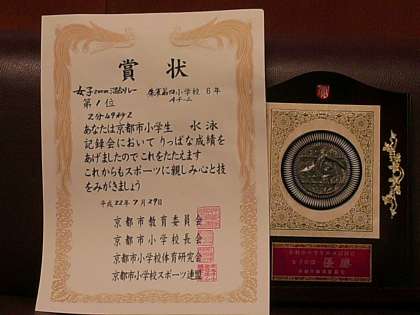 賞状
女子200mリレー
朱雀第四小学校 6年
Aチーム
第1位
2分49秒92
あなたは京都市小学生 水泳
記録会において りっぱな成績を
あげましたのでこれをたたえます
これからもスポーツに親しみ心と技
をみがきましょう
平成22年7月29日
京都市教育委員会
京都市小学校長会
京都市小学校体育研究会
京都市小学校スポーツ連盟